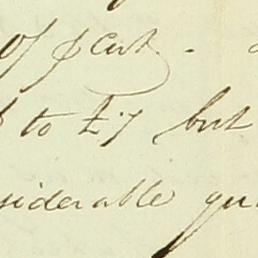 ℔ Cwt -
to £7 but
siderable qu